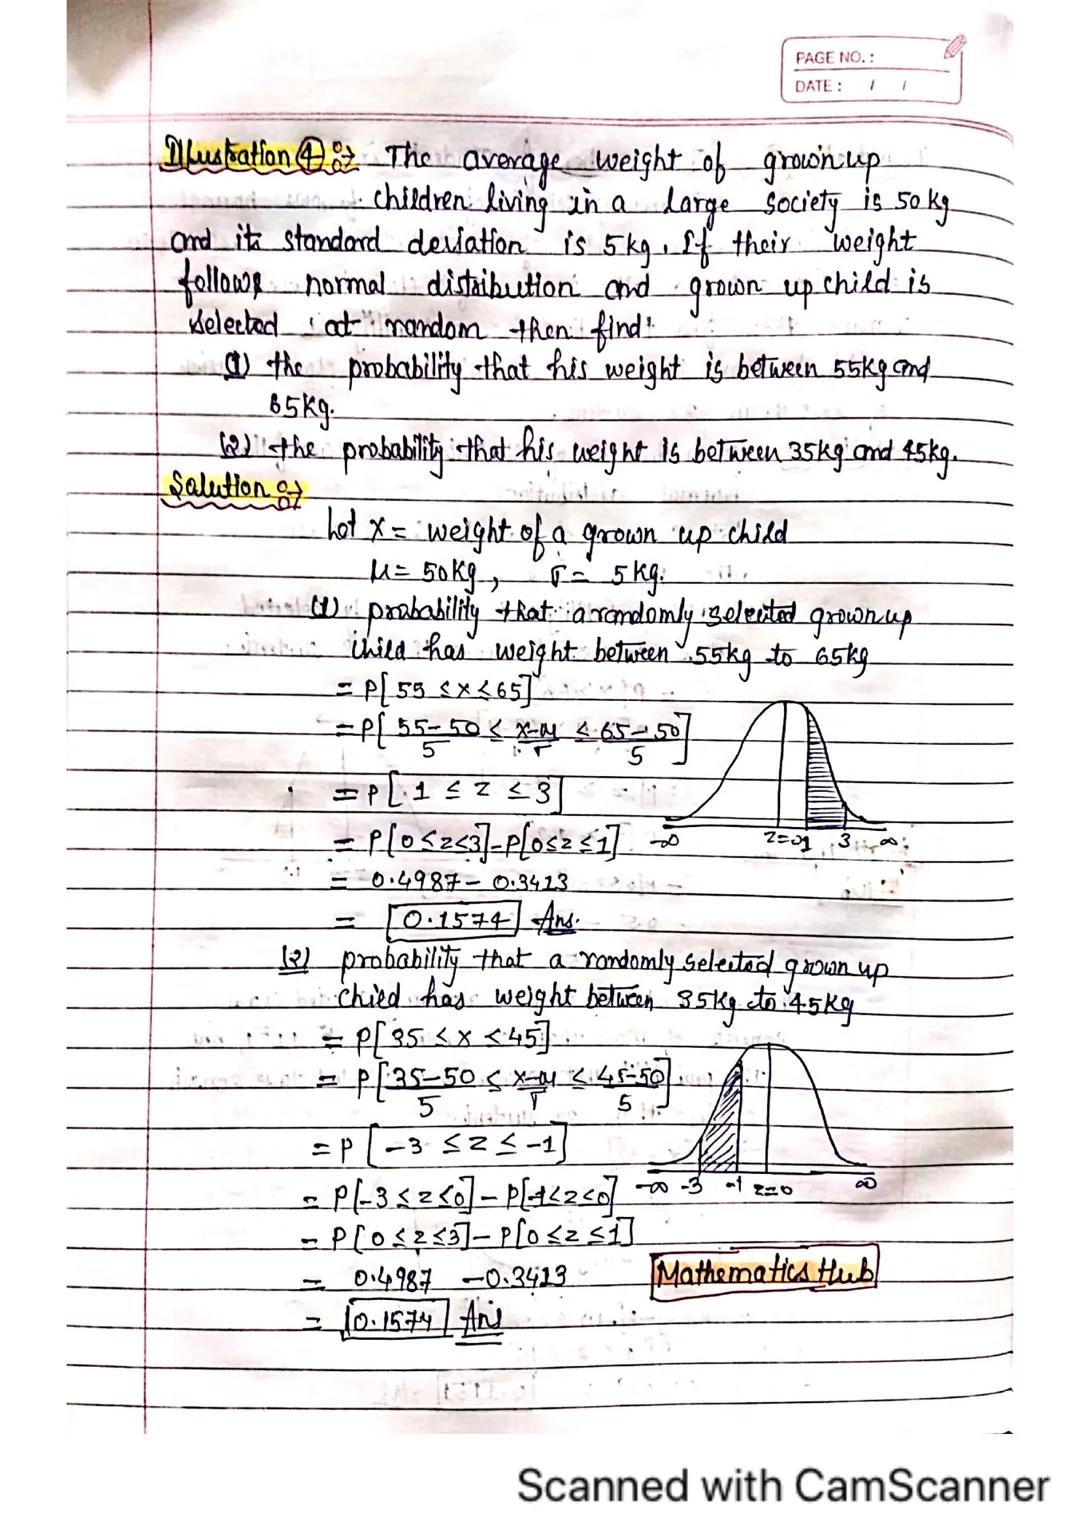 PAGE NO.:
DATE: / /
Illustration ④ :→ The average weight of grown up
children living in a large society is 50 kg
and its standard deviation is 5 kg. If their weight
follows normal distribution and grown up child is
selected at random then find:
(1) the probability that his weight is between 55kg and
65kg.
(2) the probability that his weight is between 35kg and 45kg.
Solution :→
Let X = weight of a grown up child
μ = 50kg, σ = 5kg.
(1) probability that a randomly selected grown up
child has weight between 55kg to 65kg
= P[55 ≤ x ≤ 65]
= P[55-50/5 ≤ x-μ/σ ≤ 65-50/5]
= P[1 ≤ z ≤ 3]
= P[0≤z≤3]-P[0≤z≤1]
-∞ z=0 1 3 ∞
= 0.4987 - 0.3413
= 0.1574 Ans.
(2) probability that a randomly selected grown up
child has weight between 35kg to 45kg
= P[35 ≤ x ≤ 45]
= P[35-50/5 ≤ x-μ/σ ≤ 45-50/5]
= P[-3 ≤ z ≤ -1]
= P[-3≤z≤0] - P[-1≤z≤0]
-∞ -3 -1 z=0 ∞
= P[0≤z≤3] - P[0≤z≤1]
= 0.4987 - 0.3413
Mathematics Hub
= 0.1574 Ans
Scanned with CamScanner